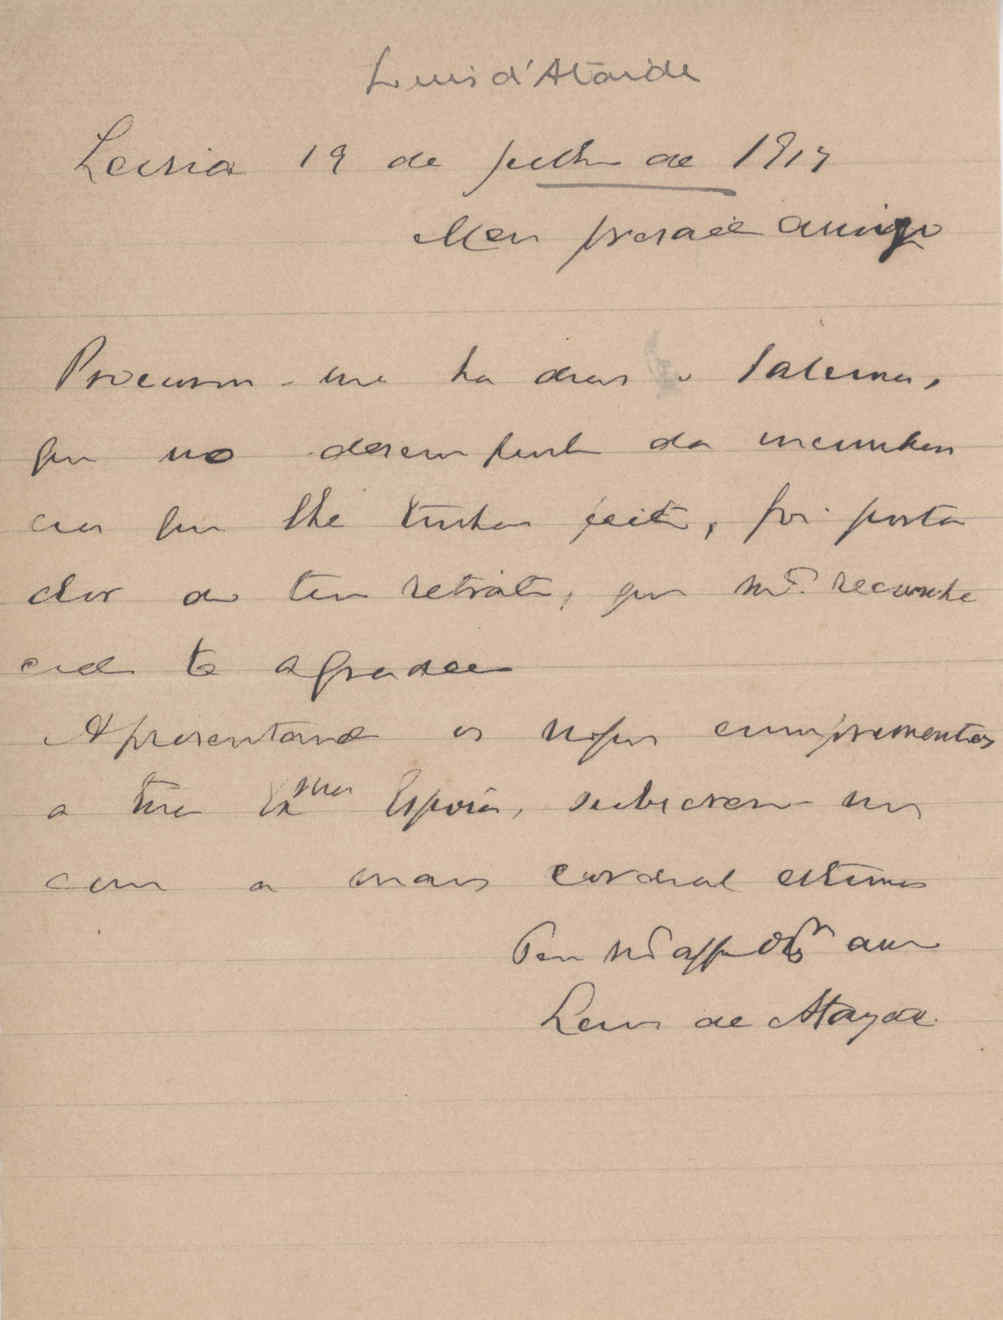 Luis d'Ataide
Leiria 19 de julho de 1917
Meu presado amigo
Procurou-me ha dias o Salema,
que no desempenho da incumben
cia que lhe tinhas feito, foi porta
dor do teu retrato, que mtº reconhe
cido te agradeço
Apresentando os nossos cumprimentos
a tua Exma Esposa, subscrevo-me
com a mais cordial estima
Teu mtº affº am
Luis de Atayde